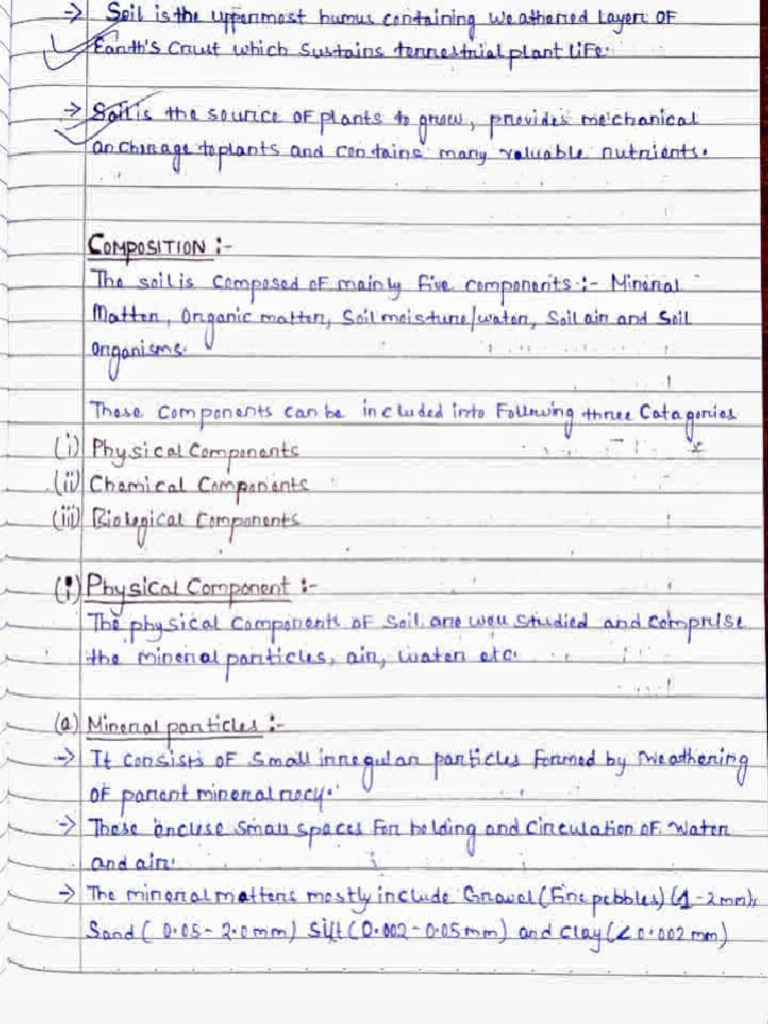 → Soil is the uppermost humus containing weathered layer of
Earth's Crust which sustains terrestrial plant life.
→ Soil is the source of plants to grow, provides mechanical
anchorage to plants and contains many valuable nutrients.
COMPOSITION :-
The soil is composed of mainly five components :- Mineral
Matter, Organic matter, Soil moisture/water, Soil air and Soil
organisms.
These Components can be included into Following three Catagories
(i) Physical Components
(ii) Chemical Components
(iii) Biological Components
(i) Physical Component :-
The physical components of soil are well studied and comprise
the mineral particles, air, water etc.
(a) Mineral particles :-
→ It consists of small irregular particles formed by weathering
of parent mineral rocy.
→ These enclose small spaces for holding and circulation of water
and air.
→ The mineral matters mostly include Gravel (Fine pebbles) (1-2mm),
Sand (0.05-2.0mm) Silt (0.002-0.05mm) and Clay (<0.002mm)